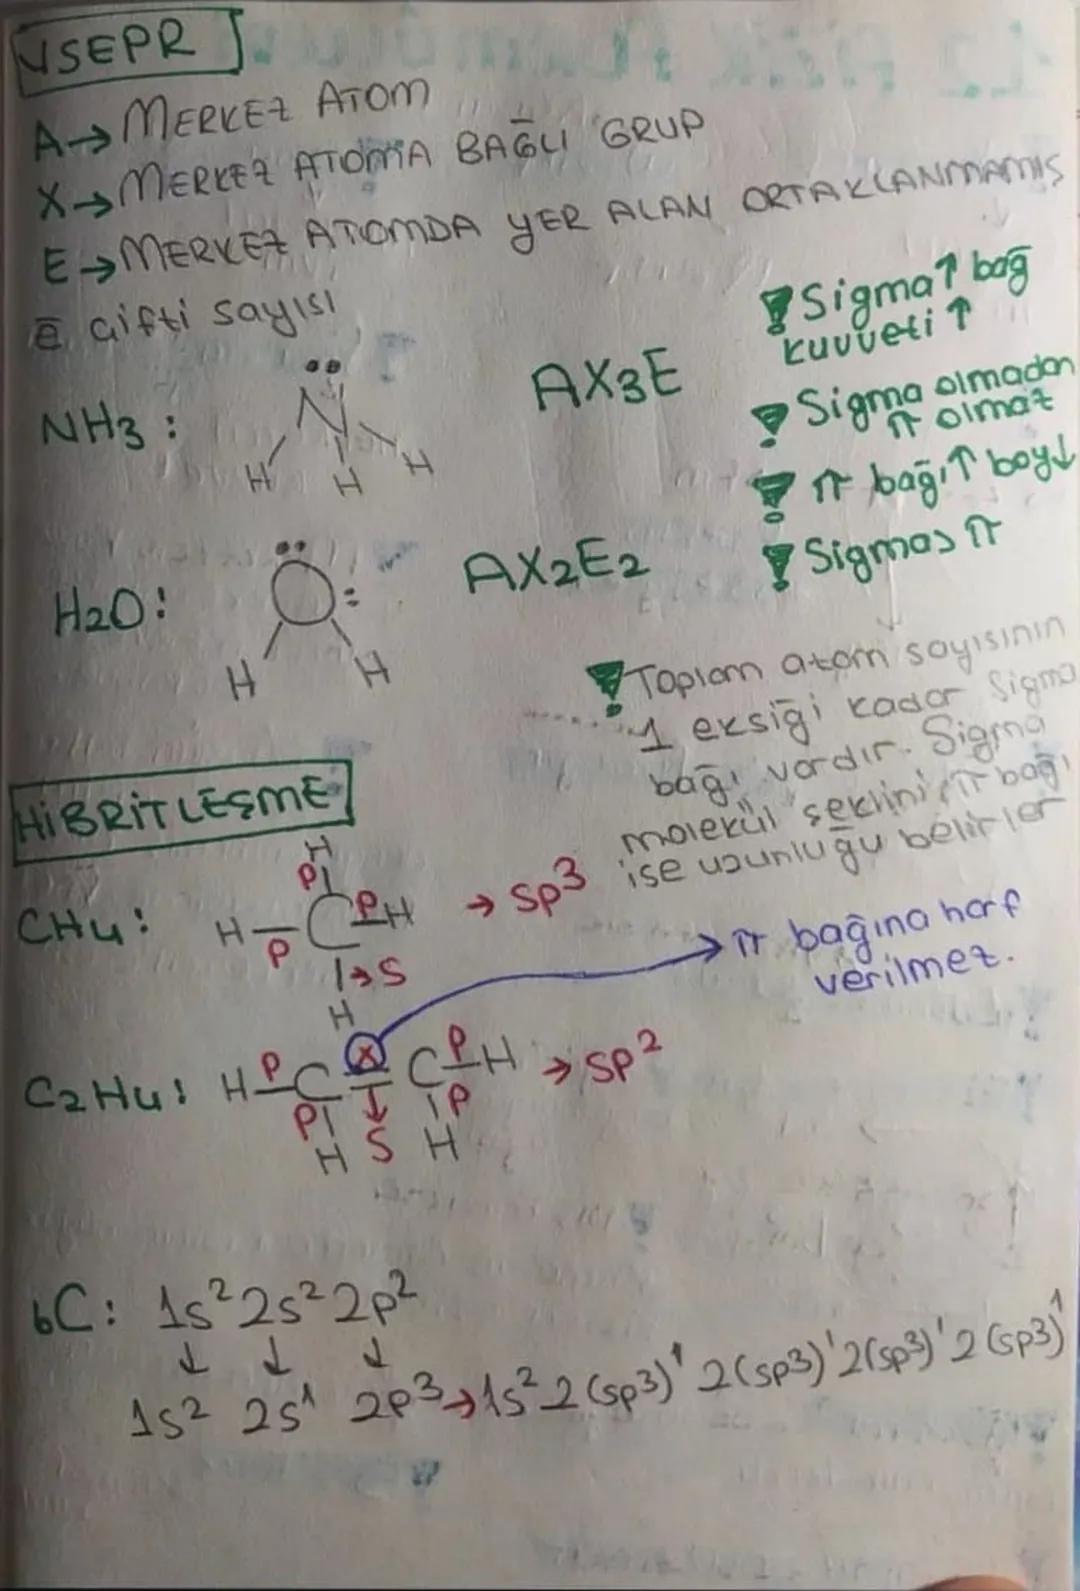 VSEPR
A→ MERKEZ ATOM
X→ MERKEZ ATOMA BAĞLI GRUP
E→ MERKEZ ATOMDA YER ALAN ORTAKLANMAMIŞ
ē çifti sayısı
! Sigma↑ bağ
kuvveti↑
NH3 :
N
H H H
AX3E
! Sigma olmadan
π olmaz
! π bağı↑ boy↓
H2O:
O
H H
AX2E2
! Sigma>π
! Toplam atom sayısının
1 eksiği kadar Sigma
bağı vardır. Sigma
molekül şeklini, π bağı
ise uzunluğu belirler
HİBRİTLEŞME
CH4:
H
P
H P C P H
→S
H
→ sp3
→ π bağına harf
verilmez.
C2H4:
H P C X C P H
P S P
H H
→ sp2
6C: 1s2 2s2 2p2
↓ ↓ ↓
1s2 2s1 2p3→1s2 2(sp3)1 2(sp3)1 2(sp3)1 2(sp3)1